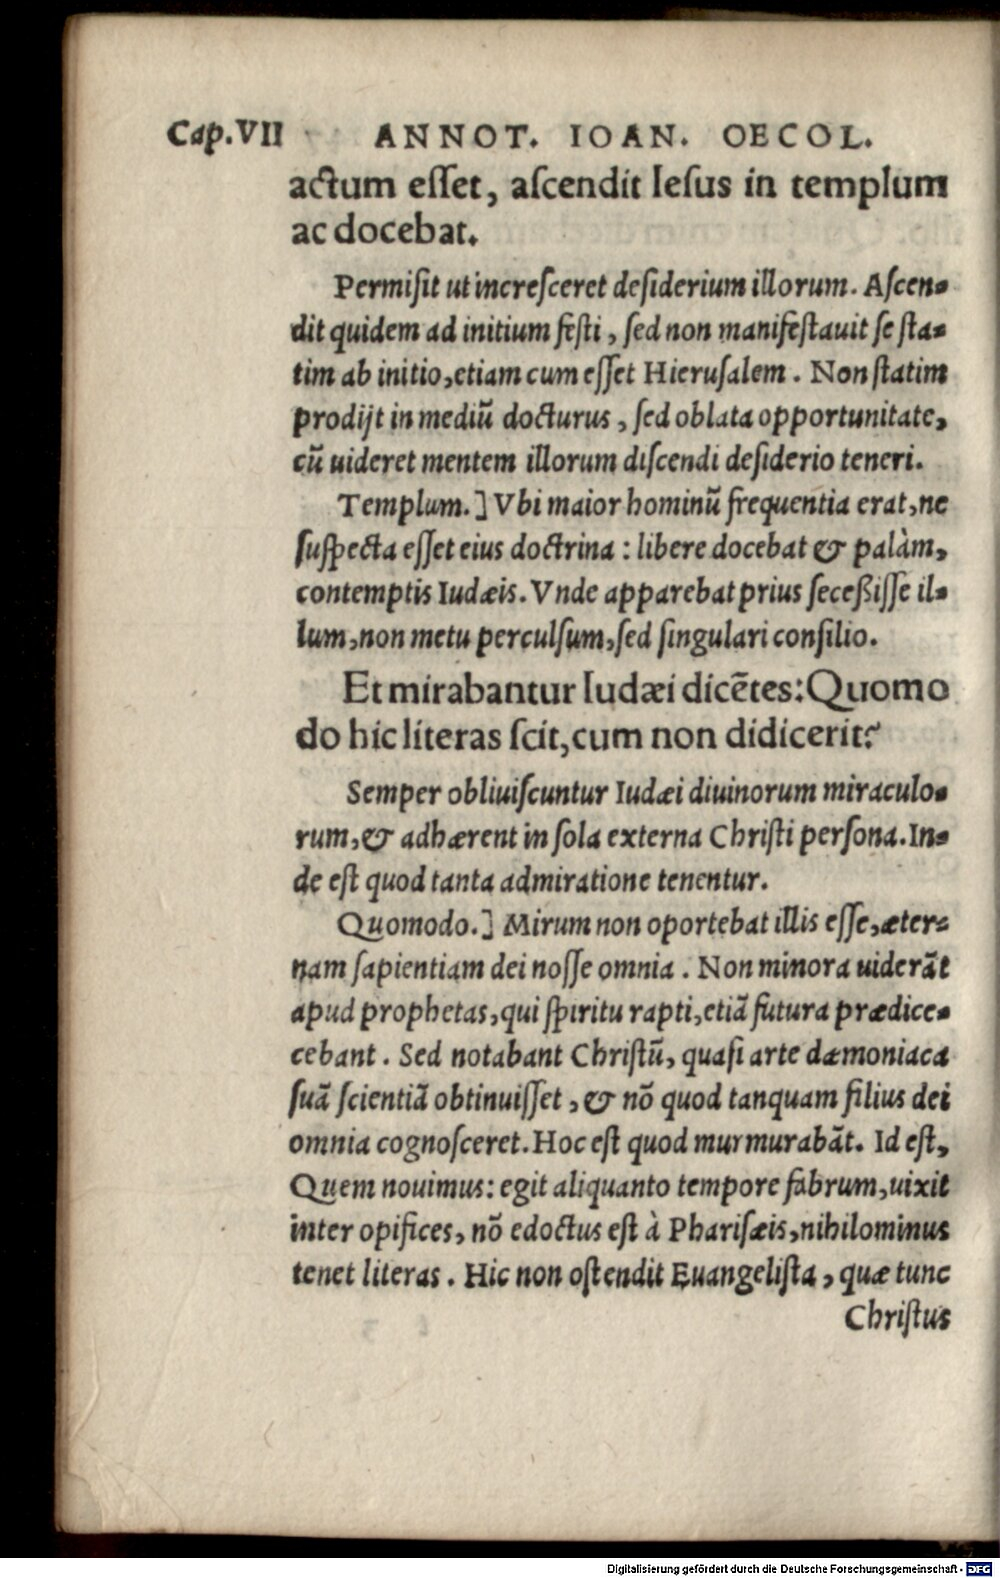 Cap.VII ANNOT. IOAN. OECOL.
actum eſſet, aſcendit Ieſus in templum
ac docebat.
Permiſit ut increſceret deſiderium illorum. Aſcen-
dit quidem ad initium feſti, ſed non manifeſtauit ſe ſta-
tim ab initio, etiam cum eſſet Hieruſalem. Non ſtatim
prodijt in mediũ docturus, ſed oblata opportunitate,
cũ uideret mentem illorum diſcendi deſiderio teneri.
Templum.] Vbi maior hominũ frequentia erat, ne
ſuſpecta eſſet eius doctrina: libere docebat & palàm,
contemptis Iudæis. Vnde apparebat prius ſeceßiſſe il-
lum, non metu perculſum, ſed ſingulari conſilio.
Et mirabantur Iudæi dicẽtes: Quomo
do hic literas ſcit, cum non didicerit?
Semper obliuiſcuntur Iudæi diuinorum miraculo-
rum, & adhærent in ſola externa Chriſti perſona. In-
de eſt quod tanta admiratione tenentur.
Quomodo.] Mirum non oportebat illis eſſe, æter-
nam ſapientiam dei noſſe omnia. Non minora uiderãt
apud prophetas, qui ſpiritu rapti, etiã futura prædice-
cebant. Sed notabant Chriſtũ, quaſi arte dæmoniaca
ſuã ſcientiã obtinuiſſet, & nõ quod tanquam filius dei
omnia cognoſceret. Hoc eſt quod murmurabãt. Id eſt,
Quem nouimus: egit aliquanto tempore fabrum, uixit
inter opifices, nõ edoctus eſt à Phariſæis, nihilominus
tenet literas. Hic non oſtendit Euangeliſta, quæ tunc
Chriſtus
Digitalisierung gefördert durch die Deutsche Forschungsgemeinschaft - DFG